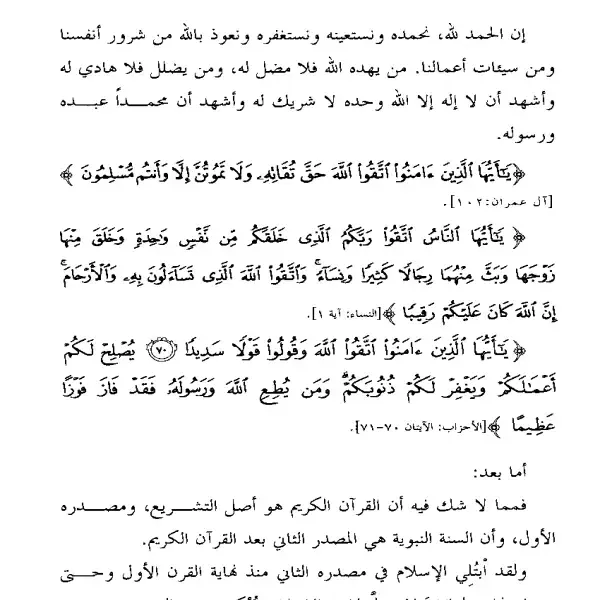 إن الحمد لله، نحمده ونستعينه ونستغفره ونعوذ بالله من شرور أنفسنا
ومن سيئات أعمالنا. من يهده الله فلا مضل له، ومن يضلل فلا هادي له
وأشهد أن لا إله إلا الله وحده لا شريك له وأشهد أن محمداً عبده
ورسوله.
﴿يَٰٓأَيُّهَا ٱلَّذِينَ ءَامَنُوا۟ ٱتَّقُوا۟ ٱللَّهَ حَقَّ تُقَاتِهِۦ وَلَا تَمُوتُنَّ إِلَّا وَأَنتُم مُّسْلِمُونَ﴾
[آل عمران: ١٠٢].
﴿يَٰٓأَيُّهَا ٱلنَّاسُ ٱتَّقُوا۟ رَبَّكُمُ ٱلَّذِى خَلَقَكُم مِّن نَّفْسٍ وَٰحِدَةٍ وَخَلَقَ مِنْهَا
زَوْجَهَا وَبَثَّ مِنْهُمَا رِجَالًا كَثِيرًا وَنِسَآءً ۚ وَٱتَّقُوا۟ ٱللَّهَ ٱلَّذِى تَسَآءَلُونَ بِهِۦ وَٱلْأَرْحَامَ ۚ
إِنَّ ٱللَّهَ كَانَ عَلَيْكُمْ رَقِيبًا﴾[النساء: آية ١].
﴿يَٰٓأَيُّهَا ٱلَّذِينَ ءَامَنُوا۟ ٱتَّقُوا۟ ٱللَّهَ وَقُولُوا۟ قَوْلًا سَدِيدًا ٧٠ يُصْلِحْ لَكُمْ
أَعْمَٰلَكُمْ وَيَغْفِرْ لَكُمْ ذُنُوبَكُمْ ۗ وَمَن يُطِعِ ٱللَّهَ وَرَسُولَهُۥ فَقَدْ فَازَ فَوْزًا
عَظِيمًا﴾[الأحزاب: الآيتان ٧٠-٧١].
أما بعد:
فمما لا شك فيه أن القرآن الكريم هو أصل التشريع، ومصدره
الأول، وأن السنة النبوية هي المصدر الثاني بعد القرآن الكريم.
ولقد اْبتُلي الإسلام في مصدره الثاني منذ نهاية القرن الأول وحتى